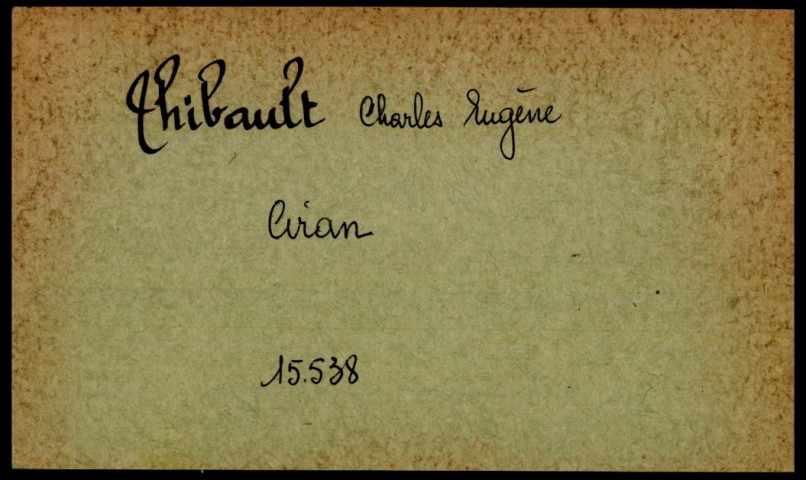 Thibault Charles Eugène
Ciran
15.538